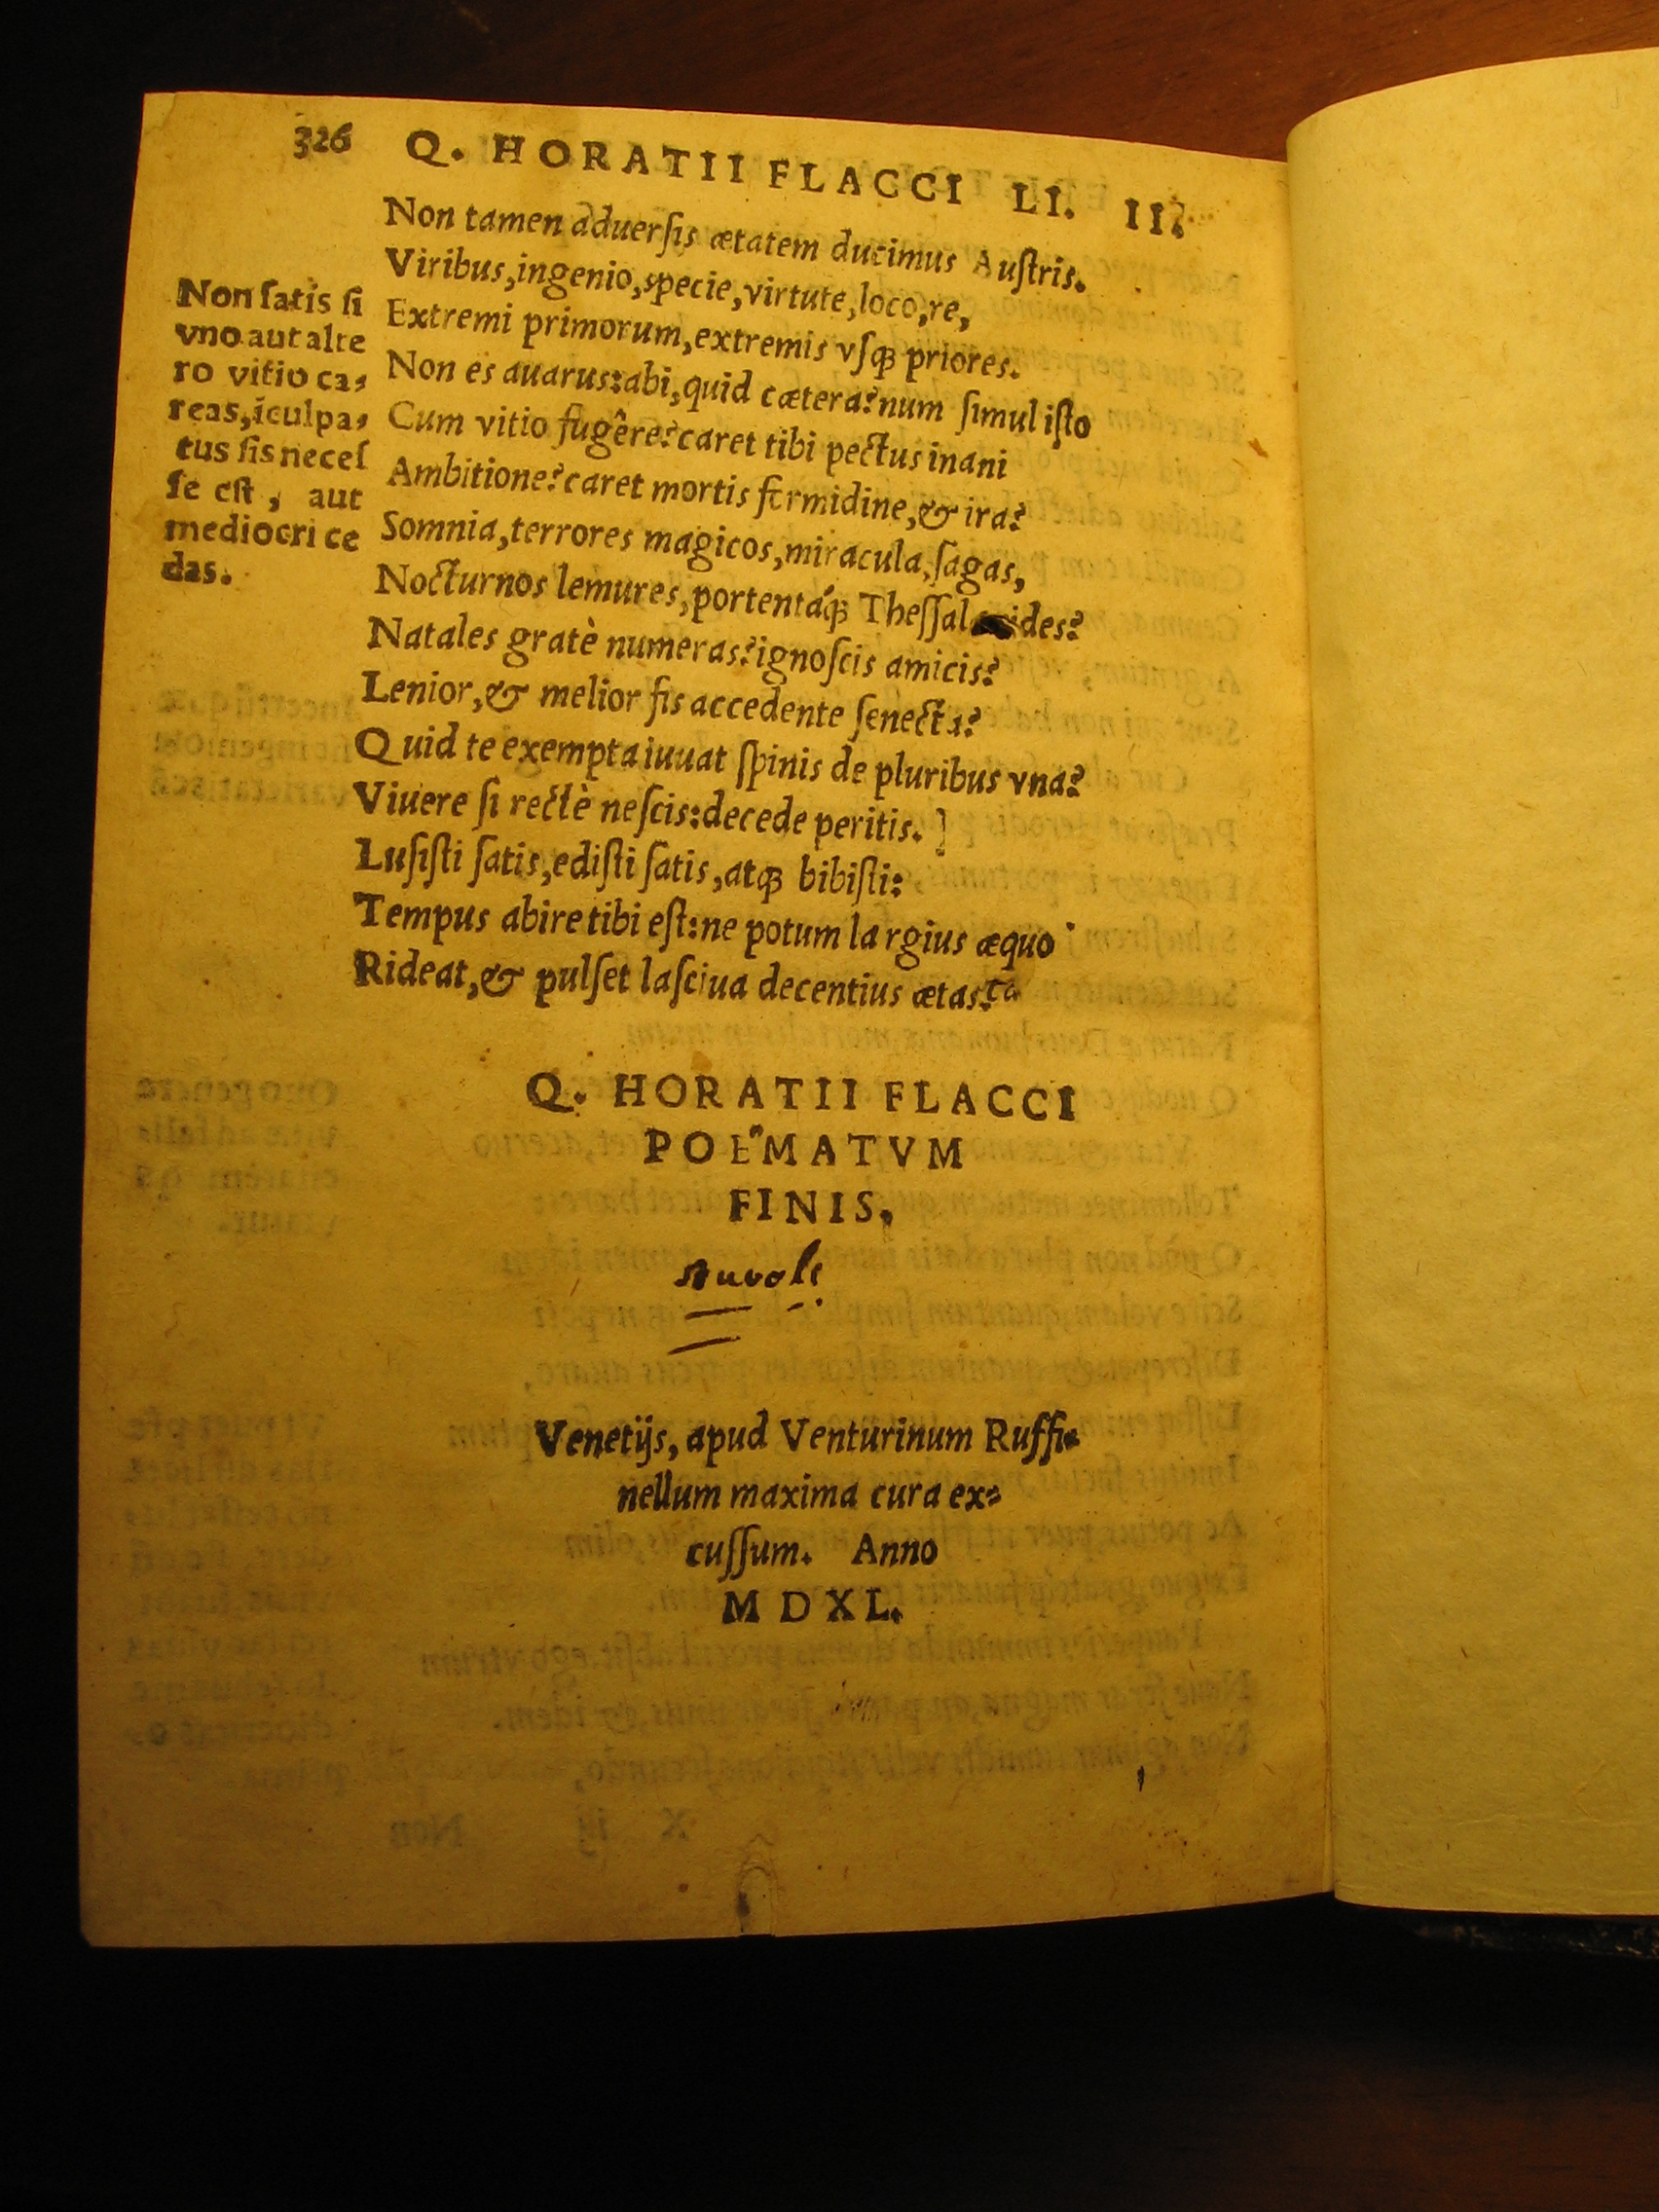 326 Q. HORATII FLACCI LI. II.
Non tamen aduerſis ætatem ducimus Auſtris.
Viribus, ingenio, specie, virtute, loco, re,
Extremi primorum, extremis vſqꝫ priores.
Non es auarus: abi, quid cætera? num ſimul iſto
Cum vitio fugêre? caret tibi pectus inani
Ambitione? caret mortis formidine, & ira?
Somnia, terrores magicos, miracula, ſagas,
Nocturnos lemures, portentáqꝫ Theſſal ides?
Natales gratè numeras? ignoſcis amicis?
Lenior, & melior fis accedente ſenecta?
Quid te exempta iuuat ſpinis de pluribus vna?
Viuere ſi rectè neſcis: decede peritis. ]
Luſiſti ſatis, ediſti ſatis, atqꝫ bibiſti:
Tempus abire tibi eſt: ne potum largius æquo
Rideat, & pulſet laſciua decentius ætas.
Non ſatis ſi
vno aut alte
ro vitio ca,
reas, iculpa,
tus ſis neceſ
ſe eſt, aut
mediocri ce
das.
Q. HORATII FLACCI
POEMATVM
FINIS.
Venetijs, apud Venturinum Ruffi-
nellum maxima cura ex-
cuſſum. Anno
MDXL.